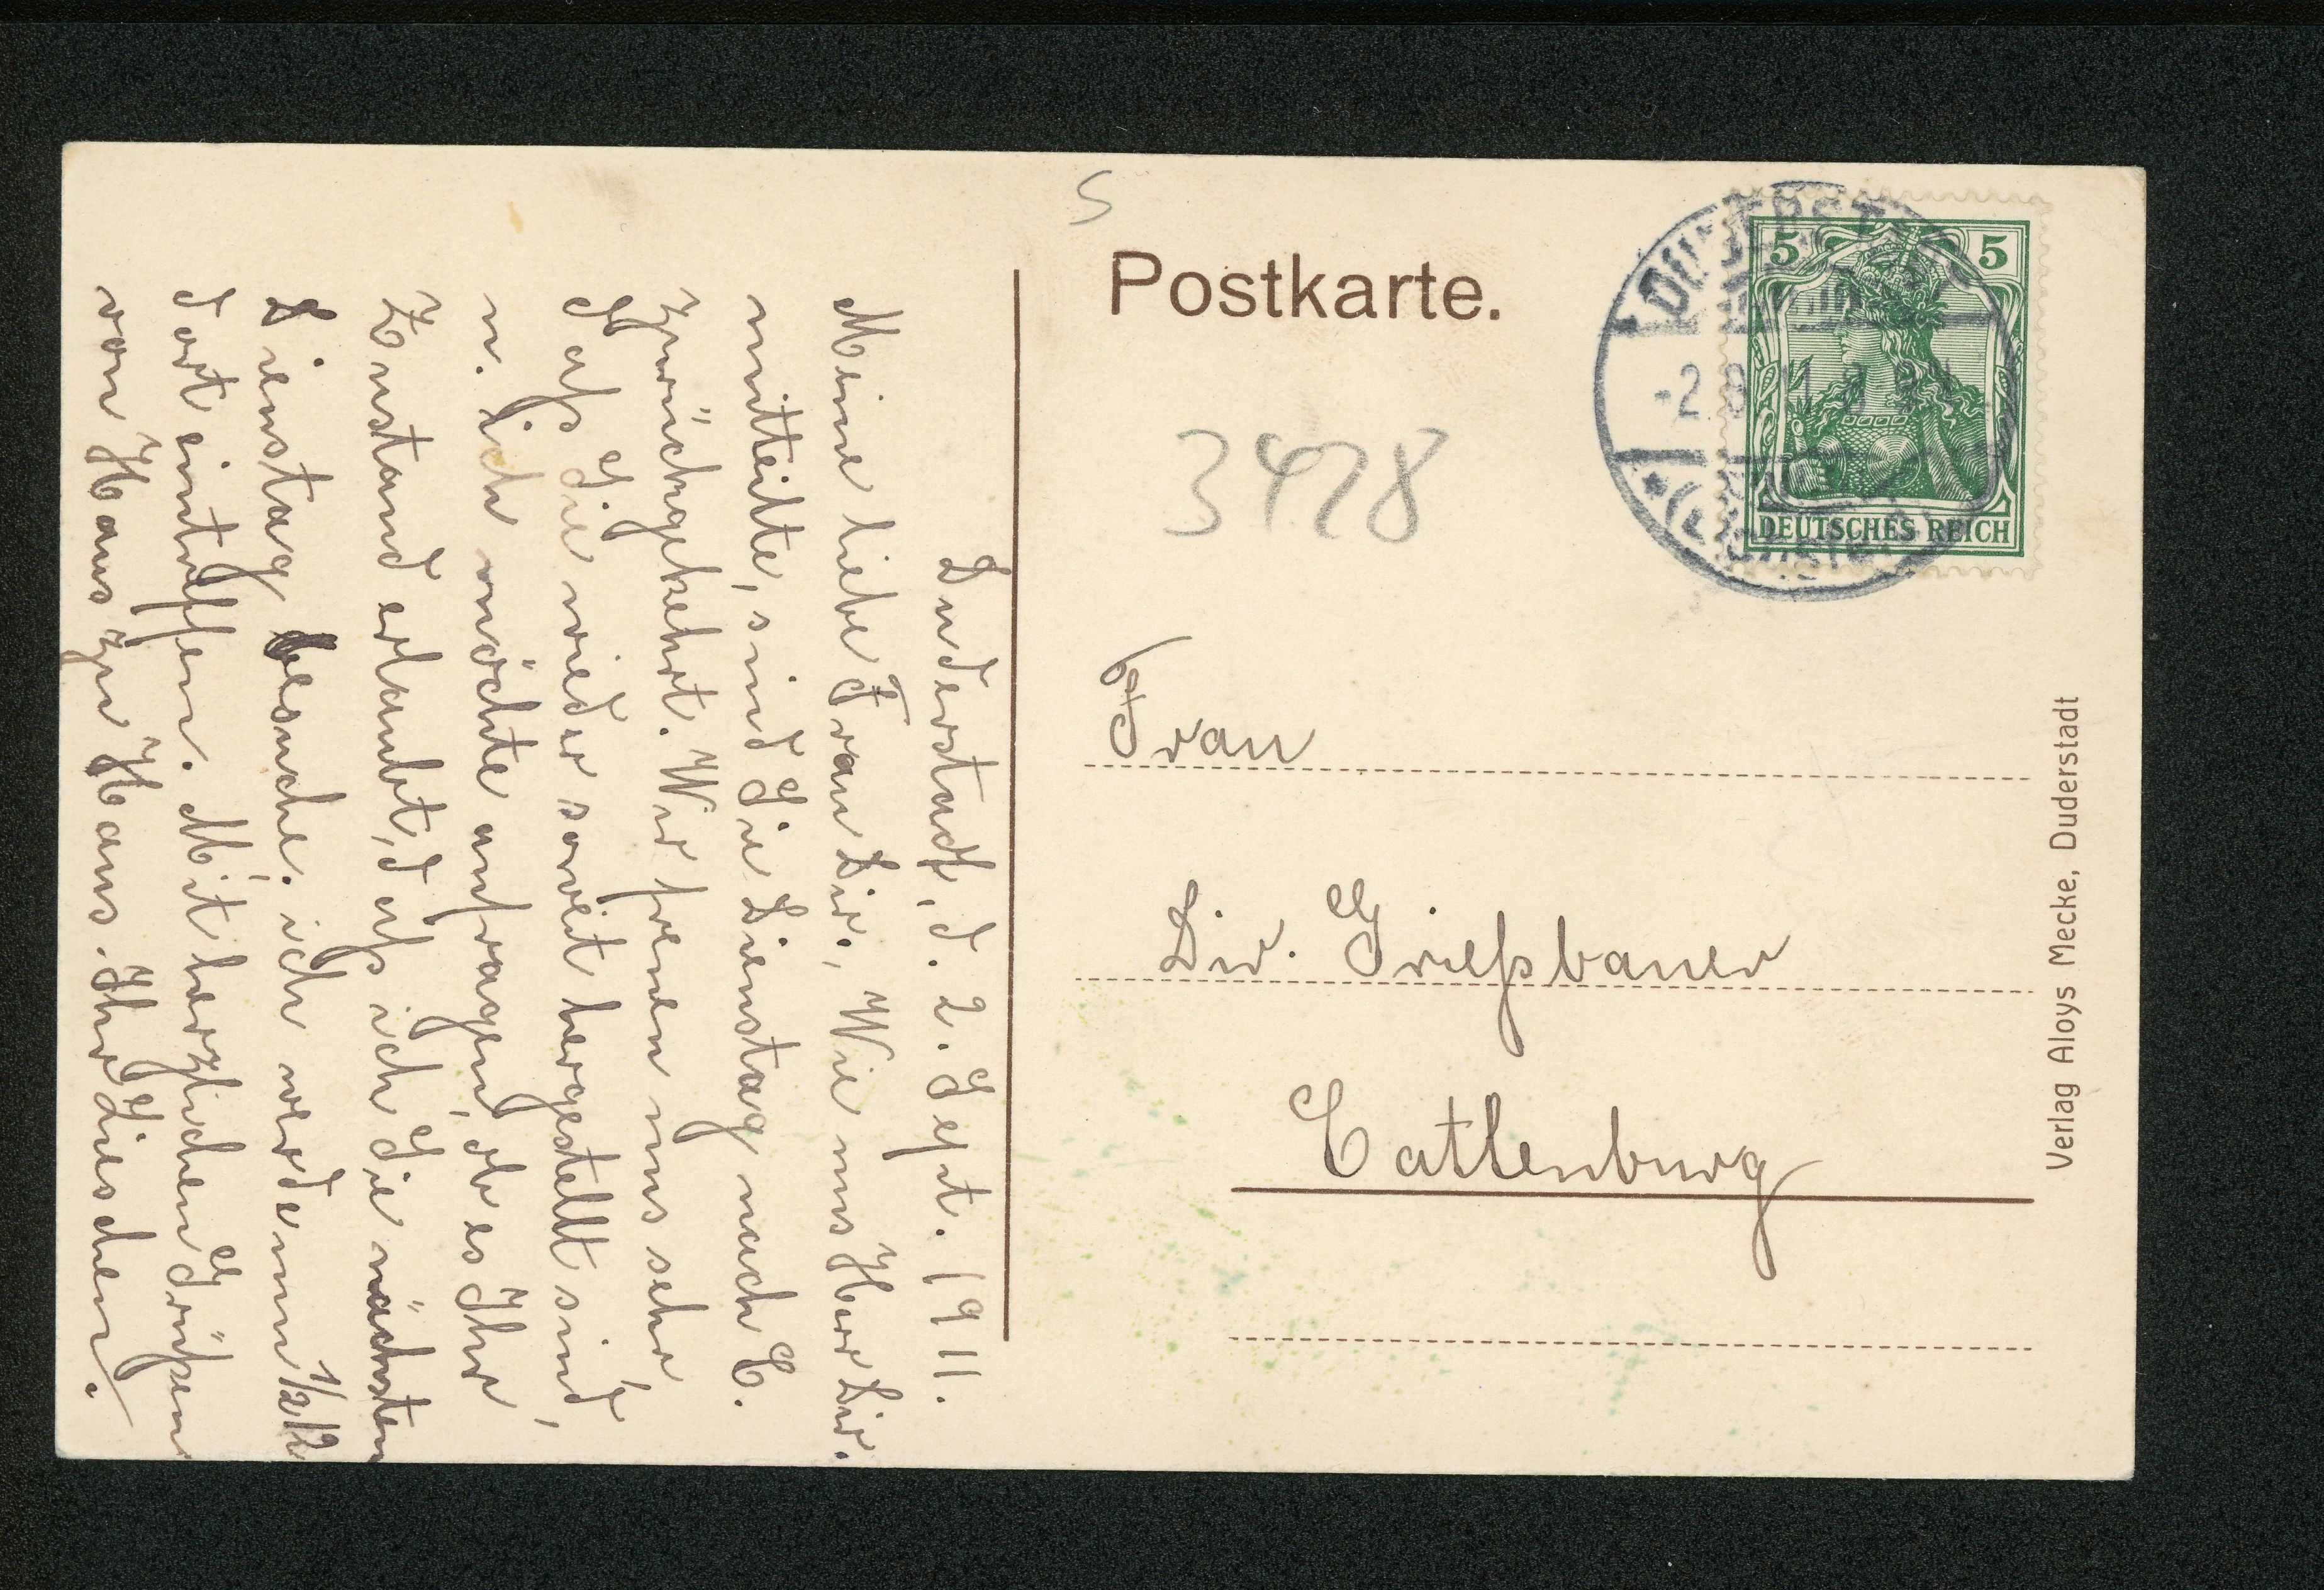 Duderstadt, d. 2. Sept. 1911.
Meine liebe Frau Dir., Wie uns Herr Dir.
mitteilte, sind Sie Dienstag nach C.
zurückgekehrt. Wir freuen uns sehr,
daß Sie wieder soweit hergestellt sind,
u. ich möchte anfragen, ob es Ihr
Zustand erlaubt, daß ich Sie nächsten
Dienstag besuche; ich werde um 1/2 12
dort eintreffen. Mit herzlichen Grüßen
von Haus zu Haus. Ihr Lieschen.
5
Postkarte.
3428
5 5
DEUTSCHES REICH
Frau
Dir. Grießbauer
Catlenburg
Verlag Aloys Mecke, Duderstadt